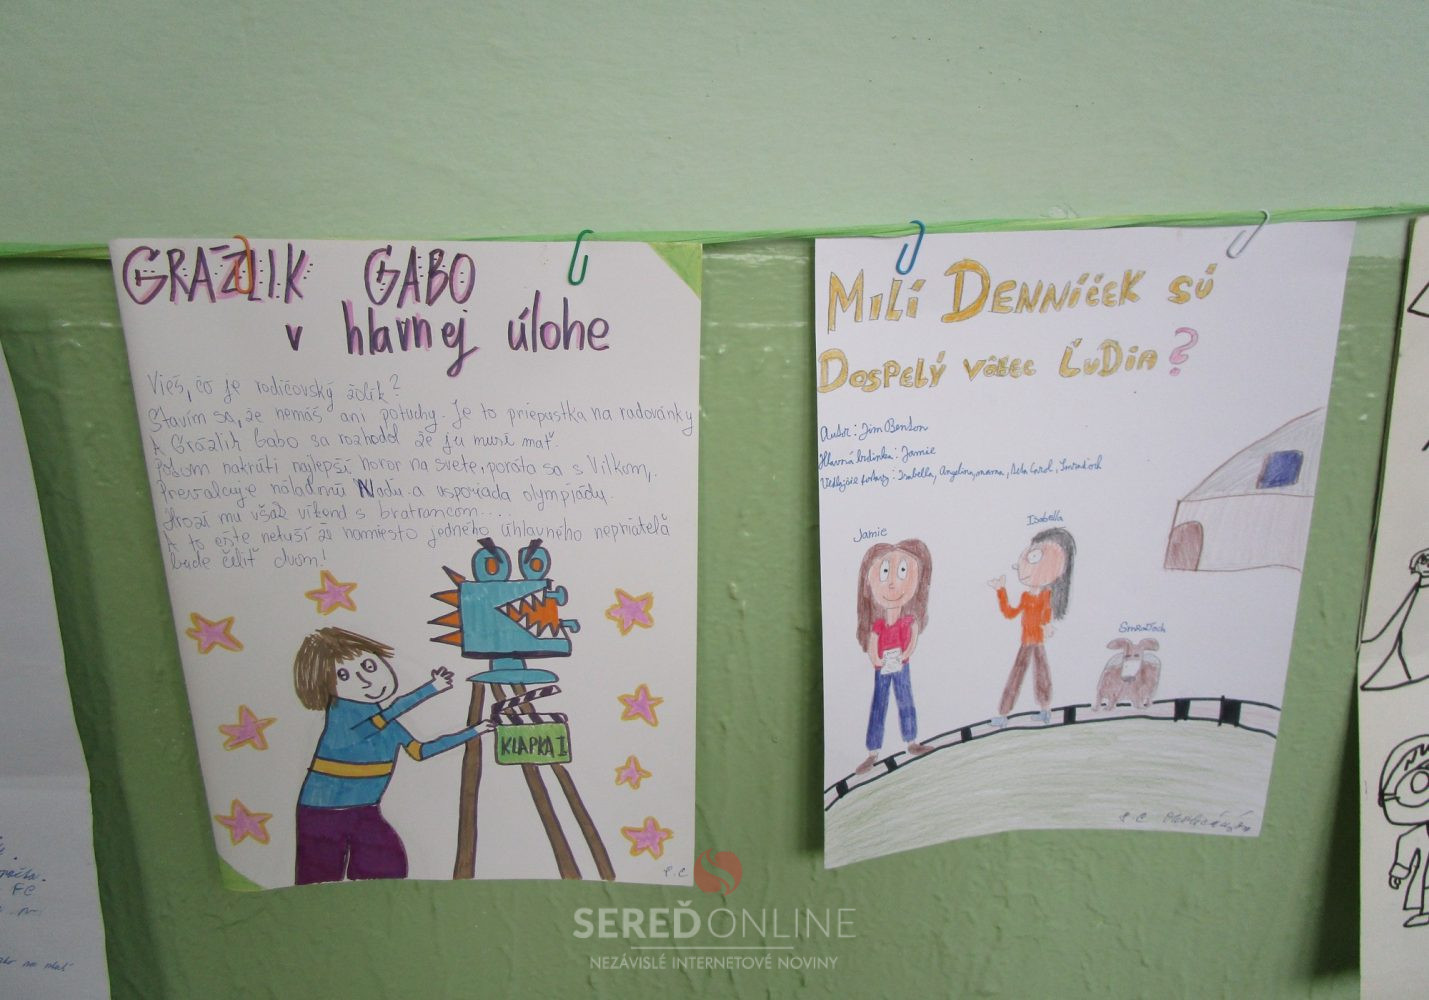 GRÁZLIK GABO
v hlavnej úlohe
Vieš, čo je rodičovský žolík?
Stavím sa, že nemáš ani potuchy. Je to priepustka na radovánky
A Grázlik Gabo sa rozhodol že ju musí mať.
Potom nakrúti najlepší horor na svete, poráta sa s Vilkom,
Prevalcuje náladovú Naďu a usporiada olympjádu.
Hrozí mu však víkend s bratrancom....
A to ešte netuší že namiesto jedného úhlavného nepriateľa
bude čeliť dvom!
KLAPKA I
5.C
MILÍ DENNÍČEK SÚ
DOSPELÝ VÔBEC ĽUDIA?
Autor: Jim Benton
Hlavná hrdinka: Jamie
Vedlajšie postavy: Isabella, Angelina, mama, teta Carol, Smraďoch
Jamie
Isabella
Smraďoch
5.C
SEREĎONLINE
NEZÁVISLÉ INTERNETOVÉ NOVINY